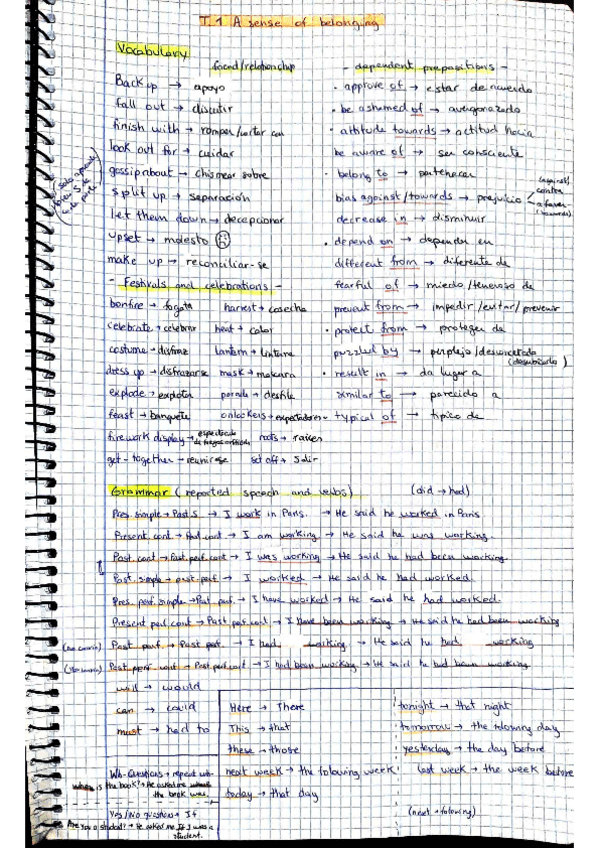 T.1 A sense of belonging
Vocabulary
food/relationship
Back up → apoyo
fall out → discutir
finish with → romper/cortar con
look out for → cuidar
gossip about → chismear sobre
split up → separación
Let them down → decepcionar
upset → molesto
make up → reconciliar-se
- dependent prepositions -
· approve of → estar de acuerdo
· be ashamed of → avergonzado
· attitude towards → actitud hacia
be aware of → ser consciente
· belong to → pertenecer
bias against/towards → prejuicio
(against) contra
a favor (towards)
decrease in → disminuir
· depend on → depender en
different from → diferente de
fearful of → miedo/temeroso de
prevent from → impedir/evitar/prevenir
· protect from → proteger de
puzzled by → perplejo/desconcertado
· result in → da lugar a
similar to → parecido a
typical of → típico de
- Festivals and celebrations -
bonfire → fogata harvest → cosecha
celebrate → celebrar heat → calor
costume → disfraz lantern → linterna
dress up → disfrazarse mask → mascara
explode → explotar parade → desfile
feast → banquete onlookers → espectadores
firework display → espectáculo de fuegos artificiales roots → raíces
get-together → reunirse set off → salir
Grammar (reported speech and verbs) (did → had)
Pres. simple → Past S → I work in Paris. → He said he worked in Paris
Present cont → Past cont. → I am working → He said he was working.
Past. cont → Past. perf. cont → I was working → He said he had been working
Past. simple → past perf. → I worked → He said he had worked.
Pres. perf. simple → Past perf. → I have worked → He said he had worked.
Present perf. cont → Past perf. cont → I have been working → He said he had been working
Past perf → Past perf. → I had working → He said he had working
Past perf cont → Past perf. cont → I had been working → He said he had been working
will → would
can → could
must → had to
Here → There
This → that
these → those
next week → the folowing week
today → that day
tonight → that night
tomorrow → the folowing day
yesterday → the day before
last week → the week before
(next → folowing)
Wh-Questions → repeat wh-
Where is the book? → He asked me where the book was.
Yes/No questions → If
Are you a student? → He asked me if I was a student.